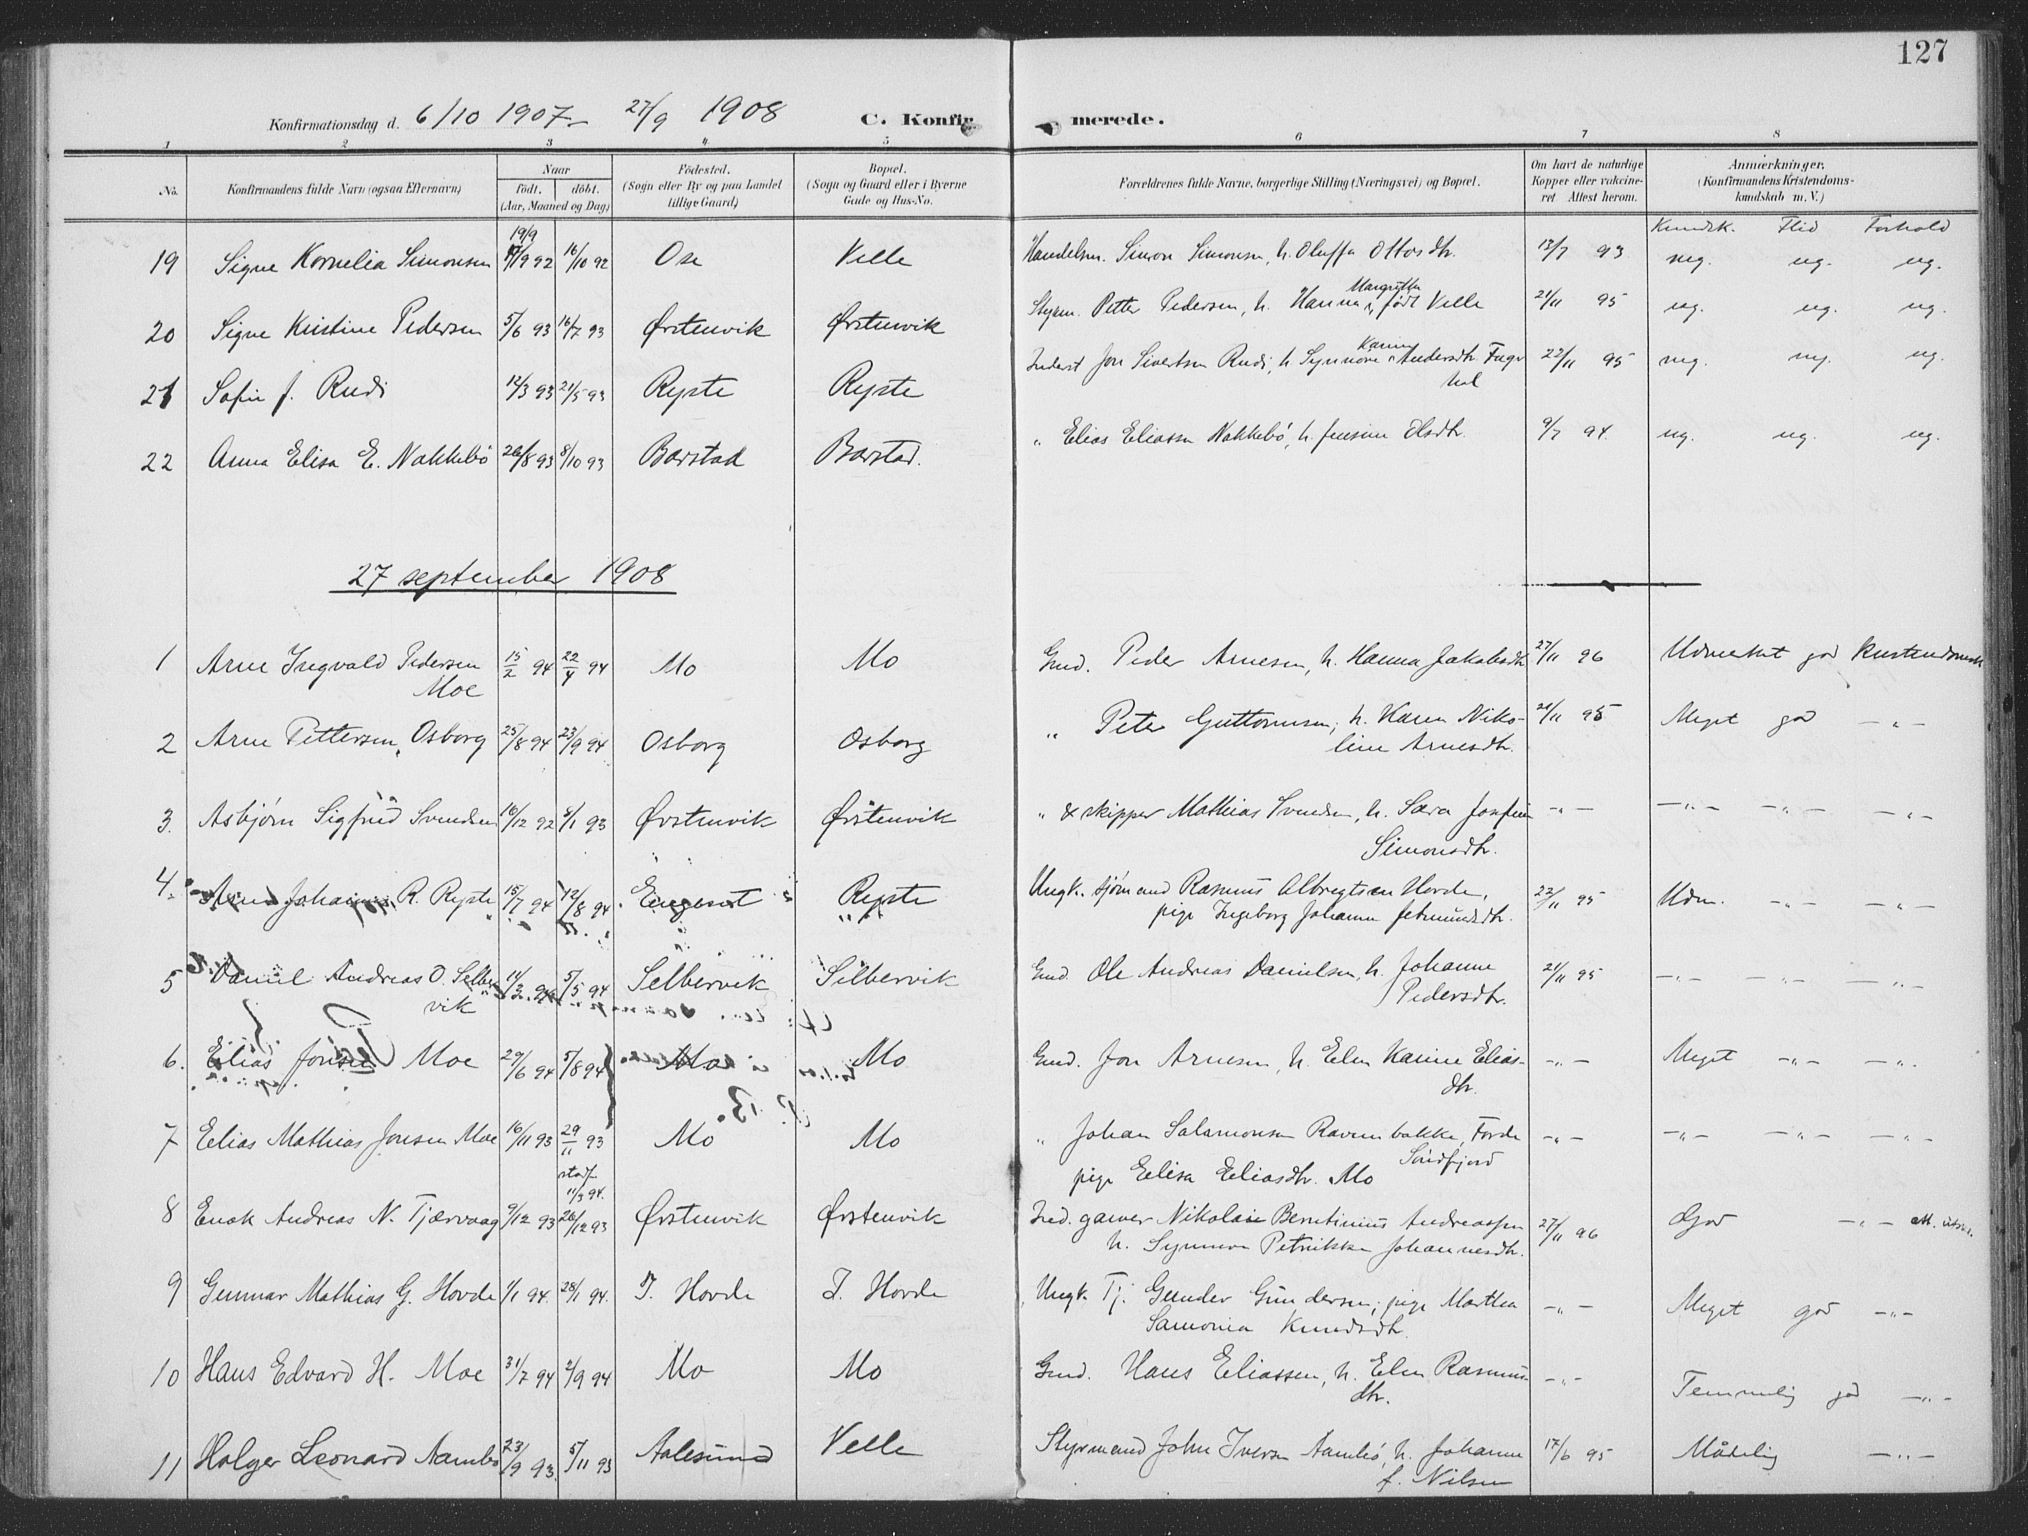 127
Konfirmationsdag d. 6/10 1907 27/9 1908 C. Konfirmerede.
1 2 3 4 5 6 7 8
No. Konfirmandens fulde Navn (ogsaa Efternavn) Naar födt. döbt. (Aar, Maaned og Dag) Födested. (Sogn eller By og paa Landet tillige Gaard) Bopæl. (Sogn og Gaard eller i Byerne Gade og Hus-No. Forældrenes fulde Navne, borgerlige Stilling (Næringsvei) og Bopæl. Om havt de naturlige Kopper eller vakcineret Attest herom. Anmærkninger. (Konfirmandens Kristendomskundskab m. V.)
Kundsk. Flid Forhold
19/9
19 Signe Kornelia Simonsen 92 16/10 92 Ose Velle Handelsm. Simon Simonsen, h. Oluffa Ottosdtr. 13/7 93 meg. ug. ug.
Margrethe
20 Signe Kristine Pedersen 5/6 93 16/7 93 Ørstenvik Ørstenvik Styrm. Petter Pedersen, h. Hanna, født Velle 21/11 95 ug. ug. ug.
21 Sofie J. Rudi 12/3 93 21/5 93 Ryste Ryste Inderst Jon Sivertsen Rudi, h. Synnøve Andersdtr. 22/11 95 meg. ug.
22 Anna Elisa E. Nakkebö 26/8 93 8/10 93 Barstad Barstad. " Elias Eliassen Nakkebö, h. Jensine Olsdtr. 9/7 94. ug. ug. ug.
27 september 1908
1 Arne Ingvald Pedersen 15/2 94 22/4 94 Mo Mo Grd. Peder Arnesen, h. Hanna Jakobsdtr. 27/11 96 Udmerket god kristendomsk
Moe
2 Arne Pettersen Osborg 25/8 94 23/9 94 Osborg Osborg " Peter Guttormsen, h. Karen Niko- 21/11 95 Meget god -"-
line Arnesdtr.
3. Asbjørn Sigfred Svendsen 16/12 92 8/1 93 Ørstenvik Ørstenvik " & skipper Mathias Svendsen, h. Sara Josefine -"- -"- -"- -"-
Simonsdtr.
4. Johannes R. Ryste 15/7 94 12/8 94 Engeset Ryste Ungk. sjømand Rasmus Albregtsen Hovde, 22/11 95 Udm. -"- -"-
pige Ingeborg Johanne Jetmundsdtr.
5 Daniel Andreas O. Selber- 5/5 94 Selbervik Selbervik Grd. Ole Andreas Danielsen, h. Johanne 21/11 95 -"- -"- -"-
vik Pedersdtr.
6. Elias Jonsen Moe 29/6 94 5/8 94 Mo Mo Grd. Jon Arnesen, h. Elen Karine Elias- -"- Meget -"- -"-
dtr.
7 Elias Mathias Jonsen Moe 16/11 93 29/11 93 Mo Mo " Johan Salamonsen Ravnebakke, Førde -"- -"- -"- -"-
Söndfjord
stadf. 11/3 94. pige Elisa Eliasdtr. Mo
8 Enok Andreas N. Tjærvaag 9/12 93 26/12 93 Ørstenvik Ørstenvik Ind. garver Nikolaie Berntinius Andreassen 27/11 96 God -"-
h. Synnøve Petrikke Johannesdtr.
9 Gunnar Mathias G. Hovde 1/1 94. 28/1 94. I. Hovde I. Hovde Ungk. Tj. Gunder Gundersen, pige Marthea -"- Meget god -"-
Samonia Knudsdtr.
10 Hans Edvard H. Moe 31/7 94 2/9 94 Mo Mo Grd. Hans Eliassen, h. Elen Rasmus- -"- Temmelig god -"-
dtr.
11 Holger Leonard Aambø 23/9 93. 5/11 93 Aalesund Velle Styrmand John Iversen Aambø, h. Johanne 17/6 95 Mådelig -"-
f. Nilsen